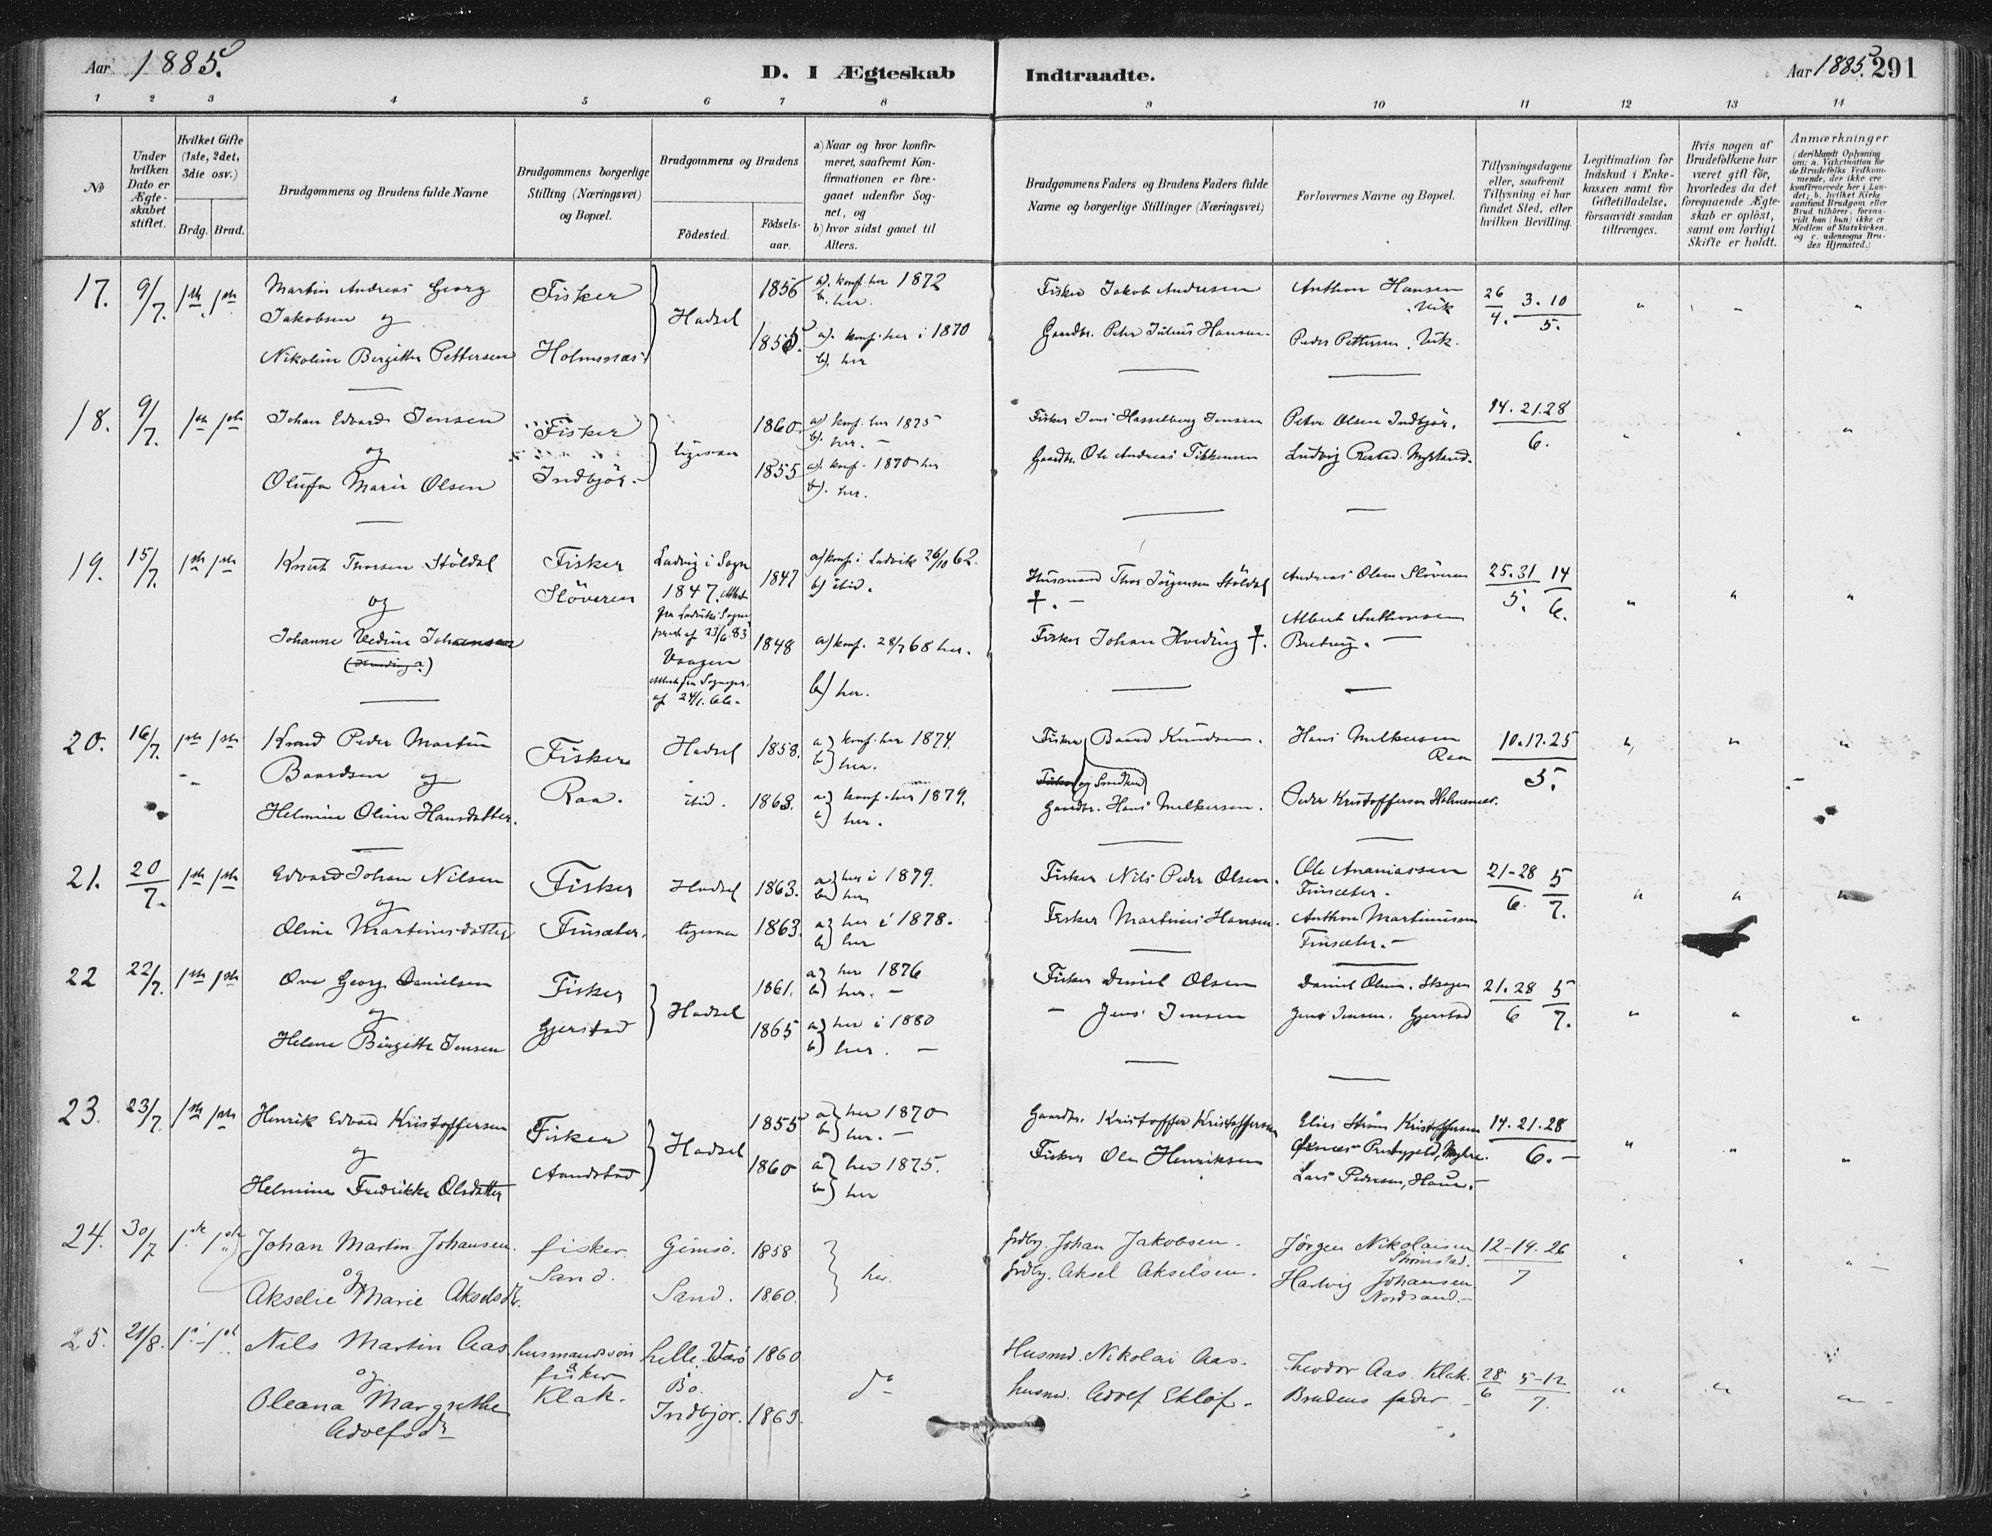 Aar 1885.
D. I Ægteskab
Indtraadte.
Aar 1885. 291
1 2 3 4 5 6 7 8 9 10 11 12 13 14
No
Under hvilken Dato er Ægteskabet stiftet.
Hvilket Gifte (1ste, 2det, 3die osv.)
Brdg. Brud.
Brudgommens og Brudens fulde Navne
Brudgommens borgerlige Stilling (Næringsvei) og Bopæl.
Brudgommens og Brudens
Fødested.
Fødselsaar.
a) Naar og hvor konfirmeret, saafremt Konfirmationen er foregaaet udenfor Sognet, og
b) hvor sidst gaaet til Alters.
Brudgommens Faders og Brudens Faders fulde Navne og borgerlige Stillinger (Næringsvei)
Forlovernes Navne og Bopæl.
Tillysningsdagene eller, saafremt Tillysning ei har fundet Sted, efter hvilken Bevilling.
Legitimation for Indskud i Enkekassen samt for Giftetilladelse, forsaavidt saadan tiltrænges.
Hvis nogen af Brudefolkene har været gift før, hvorledes da det foregaaende Ægteskab er opløst, samt om lovligt Skifte er holdt.
Anmærkninger
17. 9/7. 1ste 1ste
Martin Andreas Georg
Jakobsen og
Nikoline Bergitte Pettersen
Fisker
Holmsnæs
Hadsel
1856
1855.
a). konf. her 1872
b. her.
a). konf. her i 1870
b). her
Fisker Jakob Andresen
Gaardbr. Peter Julius Hansen
Anthon Hansen
Vik
Peder Pettersen, Vik.
26/4. 3.10/5.
18. 9/7. 1ste 1ste
Johan Edvard Jensen
og
Olufa Marie Olsen
Fisker
Indbjör.
ligesaa
1860
1855
a) konf. her 1875
b). her.
a). konf. 1870 her
b). her.
Fisker Jens Hasselberg Jensen
Gaardbr. Ole Andreas
Peter Olsen Indbjör.
Ludvig
14.21.28/6.
19. 15/7. 1ste 1ste
Knut Thorsen Stöldal
og
Johanne Vedine Johansen
Fisker
Slöveren
Ladvig i Sogn
1847. Attest
af 23/6.83
Vaagen
af 24/1.66.
1847
1848
a) konf. i Ladvik 26/10 62.
b) ibid.
a) konf. 28/7 68 her.
b) her.
Husmand Thor Jörgensen Stöldal
†. —
Fisker Johan Hveding †.
Andreas Olsen Slöveren
Albert Anthonsen
Bretvig.
25.31/5. 14/6.
20. 16/7. 1ste 1ste
Konrad Peder Martin
Baardsen og
Helmine Oline Hansdatter.
Fisker
Raa.
Hadsel
ibid.
1858.
1863.
a) konf. her 1874.
b) her.
a) konf. her 1879.
b) her.
Fisker Baard Knudsen.
Gaardbr. Hans Melkersen.
Hans Melkersen
Raa
Peder Kristoffersen Holmsnæs.
10.17.25/5.
21. 20/7. 1ste 1ste
Edvard Johan Nilsen
og
Oline Martinusdatter
Fisker
Finsæter.
Hadsel
ligesaa
1863.
1863.
a) her i 1879.
b) her
a) her i 1878.
b) her
Fisker Nils Peder Olsen.
Fisker Martinus Hansen.
Ole Ananiassen
Finsæter.
Anthon Martinussen
Finsæter.
21-28/6 5/7.
22 22/7. 1ste 1ste
Ove Georg Danielsen
og
Helene Birgitte Jensen
Fisker
Gjerstad
Hadsel
1861.
1865
a) her 1876
b) her.
a) her i 1880
b) her.
Fisker Daniel Olsen
— Jens Jensen
Daniel Olsen, Skagen
Jens Jensen, Gjerstad
21.28/6 5/7.
23. 23/7. 1ste 1ste
Henrik Edvard Kristoffersen
og
Helmine Fredrikke Olsdatter
Fisker
Aandstad
Hadsel
1855
1860
a) her 1870
b) her.
a) her 1875.
b) her
Gaardbr. Kristoffer Kristoffersen
Fisker Ole Henriksen
Elias Ström Kristoffersen
Lars Pedersen,
14.21.28/6.
24. 30/7 1ste 1ste
Johan Martin Johansen.
og
Akselie Marie Akselsdtr.
fisker.
Sand.
Gimsö.
Sand.
1858
1860.
her.
grdbr. Johan Jakobsen.
grdbr. Aksel Akselsen.
Jørgen Nikolaisen
Hartvig Johansen
Nordsand.
12-19.26/7
25. 21/8. 1ste 1ste
Nils Martin Aas
og
Oleana Margrethe
Adolfsdr
husmandssön
fisker
Klak.
Bö.
Indbjör.
1860
1863.
do
Husmd. Nikolai Aas.
husmd. Adolf Ekløf.
Theodor Aas. Klak.
Brudens fader
28/6 5-12/7.